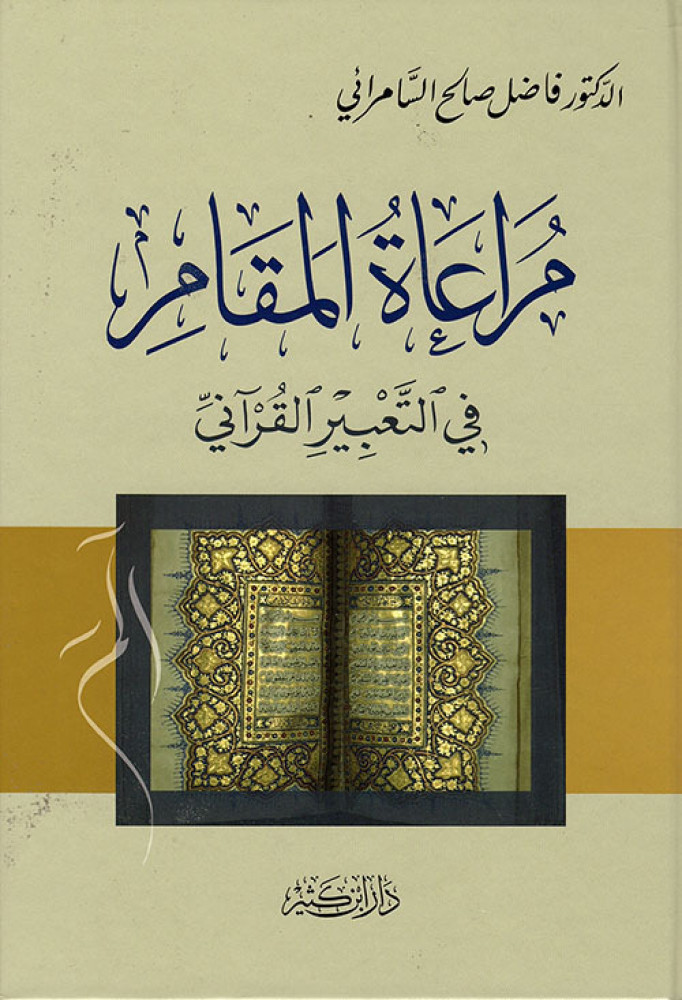 الدكتور فاضل صالح السَّامرائي
مُرَاعَاةُ المَقَامِ
فِي التَّعْبِيْرِ القُرْآنيِّ
الٓمٓ
دَار ابْن كَثير